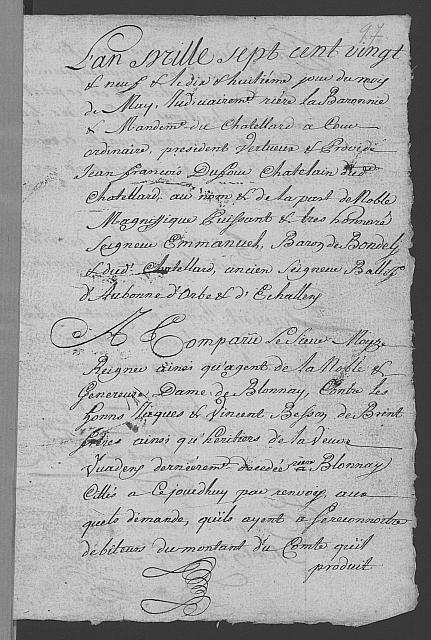 97
L'an Mille sept cent vingt
& neuf & le dix & huitiéme jour du moys
de May, Judiciairemt. riére la Baronnie
& Mandemt. du Chatellard a Cour
ordinaire, president Vertueux & Provide
Jean François Dufour Chatelain dud.
Chatellard, au nom & de la part de Noble
Magniffique Puissant & tres honnoré
Seigneur Emmanuel, Baron de Bondely
& dud. Chatellard, ancien Seigneur Ballif
d'Aubonne d'Orbe & d'Echallens
A Comparu Le Sieur Moyze
Reignee ainsi qu'agent de la Noble &
Genereuse Dame de Blonnay, Contre les
honns. Jaques & Vincent Besson de Brent
freres ainsi qu'héritiers de la Veuve
Vuadens derniéremt. decedée riére Blonnay
Cittés a Ce jourdhuy par renvois, aux
quels demande, qu'ils ayent a Se reconnoitre
debiteurs du montant du Comte qu'il
produit